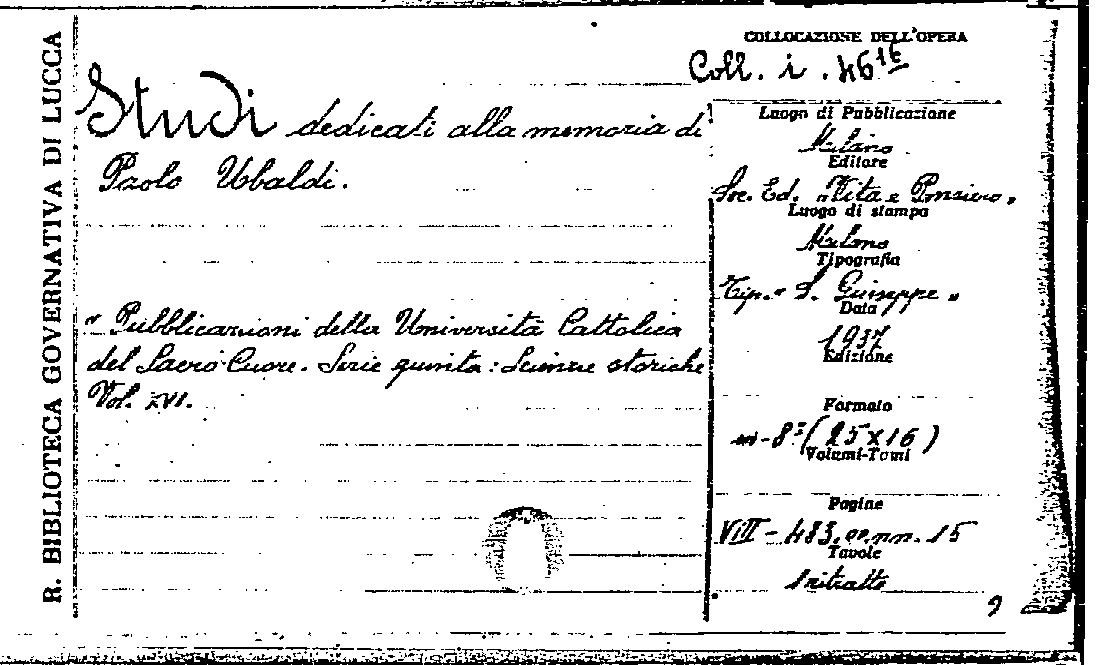 R. BIBLIOTECA GOVERNATIVA DI LUCCA
Studi dedicati alla memoria di
Paolo Ubaldi.
"Pubblicazioni della Università Cattolica
del Sacro Cuore. Serie quinta: Scienze storiche
Vol. XVI.
COLLOCAZIONE DELL'OPERA
Coll. i. 46 16
Luogo di Pubblicazione
Milano
Editore
Soc. Ed. "Vita e Pensiero"
Luogo di stampa
Milano
Tipografia
Tip. "S. Giuseppe"
Data
1937
Edizione
Formato
in-8° (25x16)
Volumi-Tomi
Pagine
VIII-483, cc. nn. 15
Tavole
1 ritratto
9